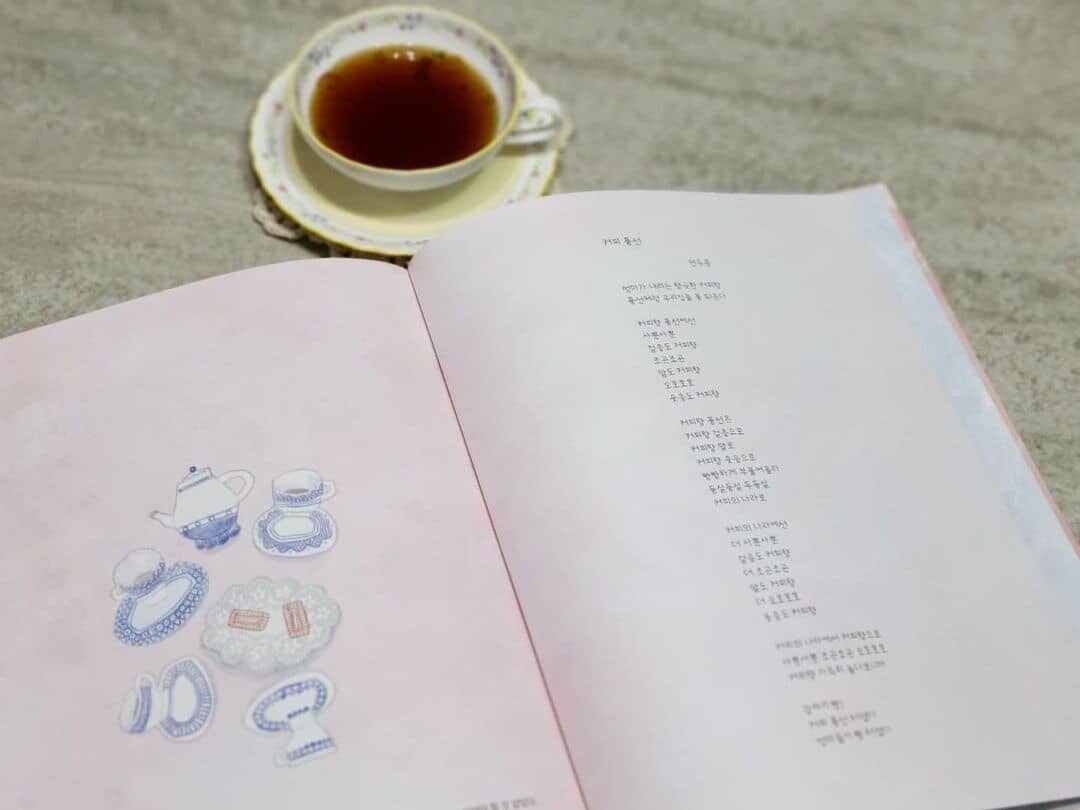 커피 풍선
연두콩
엄마가 내리는 향긋한 커피향
풍선처럼 우리집을 붕 띄운다
커피향 풍선에선
사뿐사뿐
걸음도 커피향
조곤조곤
말도 커피향
오호호호
웃음도 커피향
커피향 풍선은
커피향 걸음으로
커피향 말로
커피향 웃음으로
빵빵하게 부풀어올라
둥실둥실 두둥실
커피의 나라로
커피의 나라에선
더 사뿐사뿐
걸음도 커피향
더 조곤조곤
말도 커피향
더 오호호호
웃음도 커피향
커피의 나라에서 커피향으로
사뿐사뿐 조곤조곤 오호호호
커피향 가득히 놀다보니까
커피 풍선